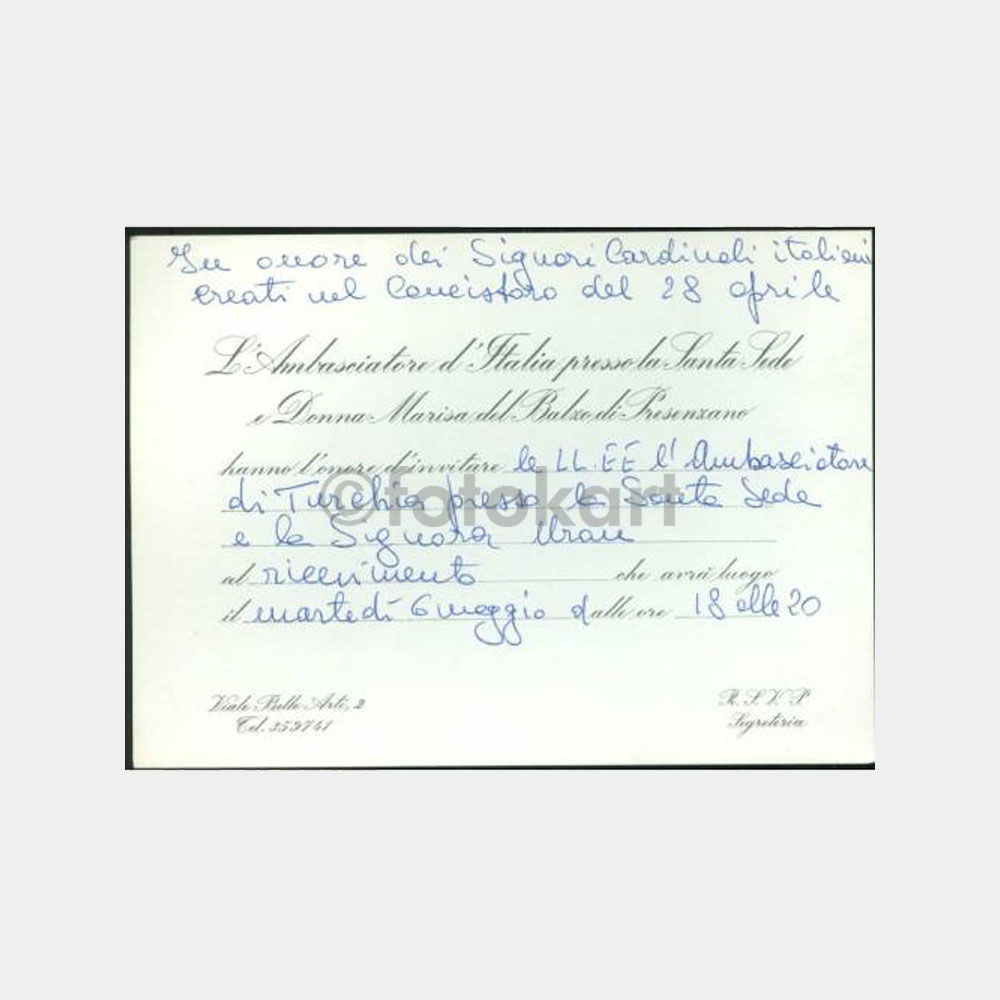 In onore dei Signori Cardinali italiani
creati nel Concistoro del 28 aprile
L'Ambasciatore d'Italia presso la Santa Sede
e Donna Marisa del Balzo di Presenzano
hanno l'onore d'invitare le LL.EE l'Ambasciatore
di Turchia presso la Santa Sede
e la Signora Uran
al ricevimento che avrà luogo
il martedì 6 maggio dalle ore 18 alle 20
Viale Belle Arti, 2
Tel. 359741
R.S.V.P
Segreteria
©fotokart